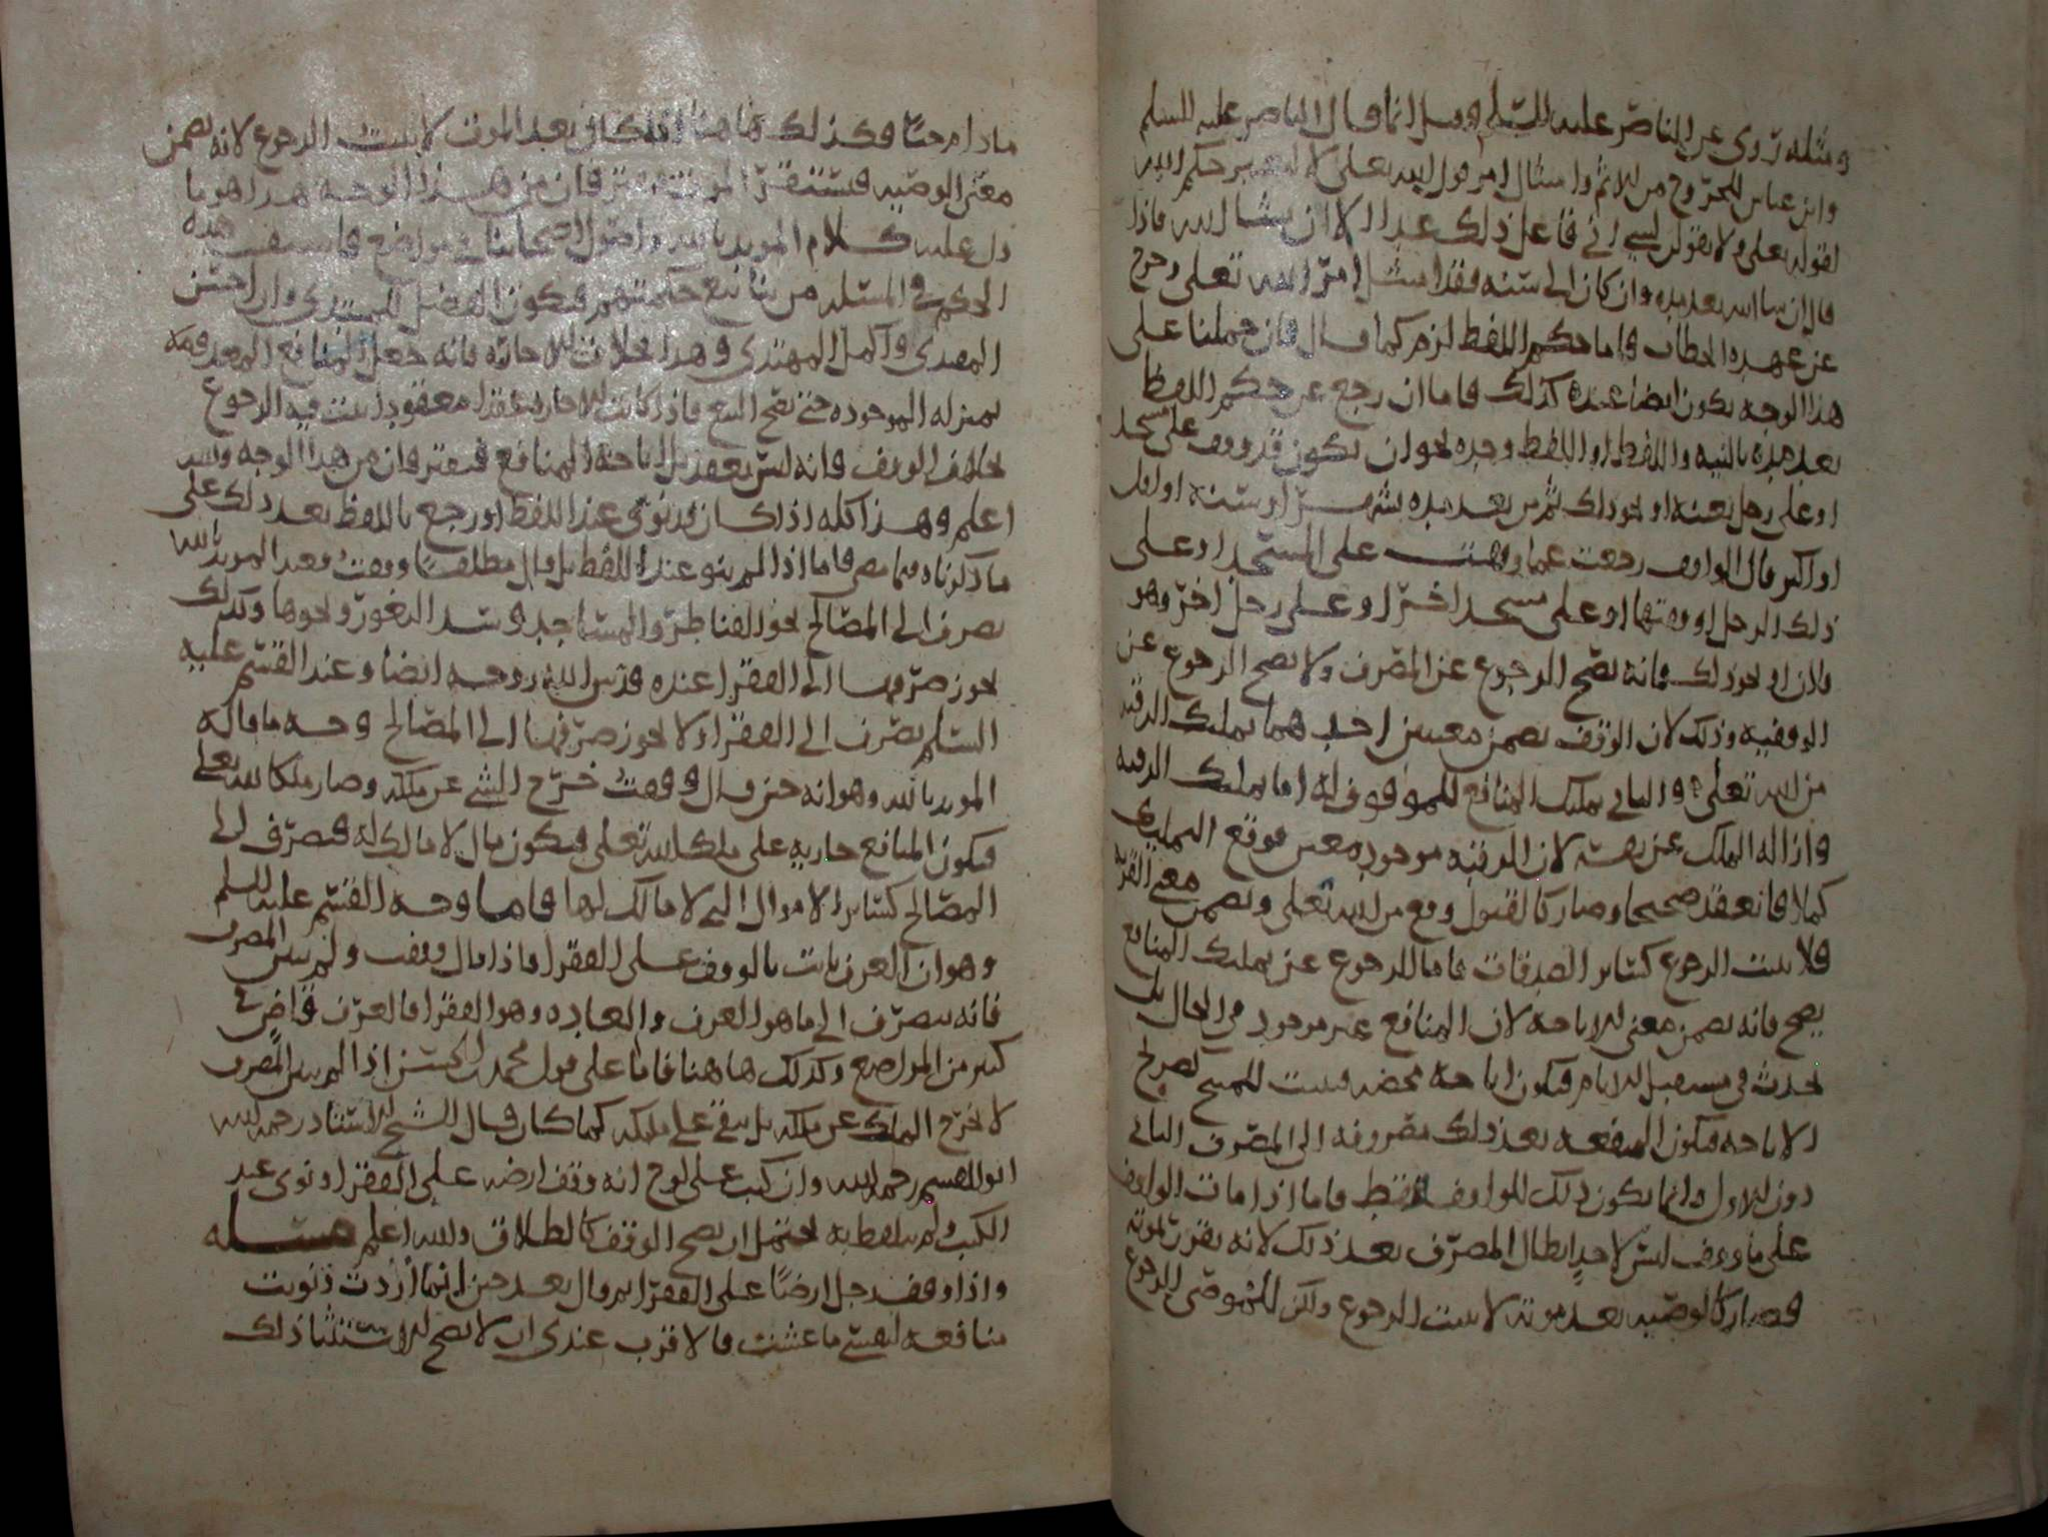 ومثله روي عن الناصر عليه السلم وقيل انما قال الناصر عليه السلم
وابن عباس للخروج من الاثم وامتثال امر قول الله تعلى لا لتغيير حكم اليمين
لقوله تعلى ولا تقولن لشي اني فاعل ذلك غدا الا ان يشا الله فاذا
قال ان شا الله بعد مده وان كان الى سنه فقد امتثل امر الله تعلى وخرج
عن عهده الخطاب فاما حكم اللفظ لزم كما قال فان حملنا على
هذا الوجه يكون ايضا عنده كذلك فاما ان رجع عن حكم اللفظ
بعد مده بالنيه واللفظ او اللفظ وحده نحو ان يكون قد وقف على مسجد
او على رجل بعينه او نحو ذلك ثم من بعد مده بشهر او سنه او اقل
او اكثر قال الواقف رجعت عما وقفت على المسجد او على
ذلك الرجل او وقفتها او على مسجد اخر او على رجل اخر وهو
فلان او نحو ذلك فانه يصح الرجوع عن المصرف ولا يصح الرجوع عن
الوقفيه وذلك لان الوقف تضمن معنيين احدهما تمليك الرقبه
من الله تعلى والثاني تمليك المنافع للموقوف له اما تمليك الرقبه
وازاله الملك عن نفسه لان الرقبه موجوده معين فوقع التمليك
كملا فانعقد صحيحا وصار كالقبول وقع من الله تعلى وتضمن معنى القربه
فلا يثبت الرجوع كساير الصدقات فاما الرجوع عن تمليك المنافع
يصح فانه تضمن معنى الاباحه لان المنافع غير موجود في الحال بل
تحدث في مستقبل الايام فيكون اباحه محضه فيثبت للمبيح
الاباحه فيكون المنفعه بعد ذلك مصروفه الى المصرف الثاني
دون الاول وانما يكون ذلك للواقف فقط فاما اذا مات الواقف
على ما وقف ليس لاحد ابطال المصرف بعد ذلك لانه يقرر بموته
فصار كالوصيه بعد موته لا يثبت الرجوع ولكن للموصي الرجوع
مادام حيا فكذلك هاهنا فاذا كان بعد الموت لا يثبت الرجوع لانه تضمن
معنى الوصيه فتستقر فان من هذا الوجه هذا هو ما
دل عليه كلام المويد بالله واصول اصحابنا في مواضع
الحكم في المسله من فيكون الفضل للمبتدي وان احسن
المقتدي واكمل المهتدي وهذا بخلاف الاجاره فانه جعل المنافع المعدومه
بمنزله الموجوده حتى يصح البيع فاذا كانت الاجاره عقدا معقودا يثبت فيه الرجوع
بخلاف الوقف فانه ليس بعقد بل اباحه المنافع فيفترقان من هذا الوجه والله
اعلم وهذا كله اذا كان قد نوى عند اللفظ او رجع باللفظ بعد ذلك على
ما ذكرناه فيما مضى فاما اذا لم ينو عند اللفظ بل قال مطلقا وقفت فعند المويد بالله
يصرف الى المصالح نحو القناطر والمساجد وسد الثغور ونحوها وكذلك
يجوز صرفها الى الفقرا عنده قدس الله روحه ايضا وعند القسم عليه
السلم يصرف الى الفقرا ولا يجوز صرفها الى المصالح وجه ما قاله
المويد بالله وهو انه حين قال وقفت خرج الشي عن ملكه وصار ملكا لله تعلى
فيكون المنافع جاريه على ملك الله تعلى فيكون مال لا مالك له فيصرف الى
المصالح كساير الاموال التي لا مالك لها فاما وجه القسم عليه السلم
وهو ان العرف ثابت بالوقف على الفقرا فاذا قال وقفت ولم يبين المصرف
فانه يصرف الى ما هو العرف والعاده وهو الفقرا فالعرف قاض في
كثير من المواضع وكذلك هاهنا فاما على قول محمد بن الحسن اذا لم يبين المصرف
لا يخرج الملك عن ملكه بل يبقى على ملكه كما كان قال الشيخ الاستاد رحمه الله
ابو القسم رحمه الله وان كتب على لوح انه وقف ارضه على الفقرا ونوى عند
الكتب ولم يتلفظ به يحتمل ان يصح الوقف كالطلاق والله اعلم مسله
واذا وقف رجل ارضا على الفقرا ثم قال بعد حين انما اردت ونويت
منافعه لنفسي ما عشت فالاقرب عندي ان لا يصح الاستثنا ذلك